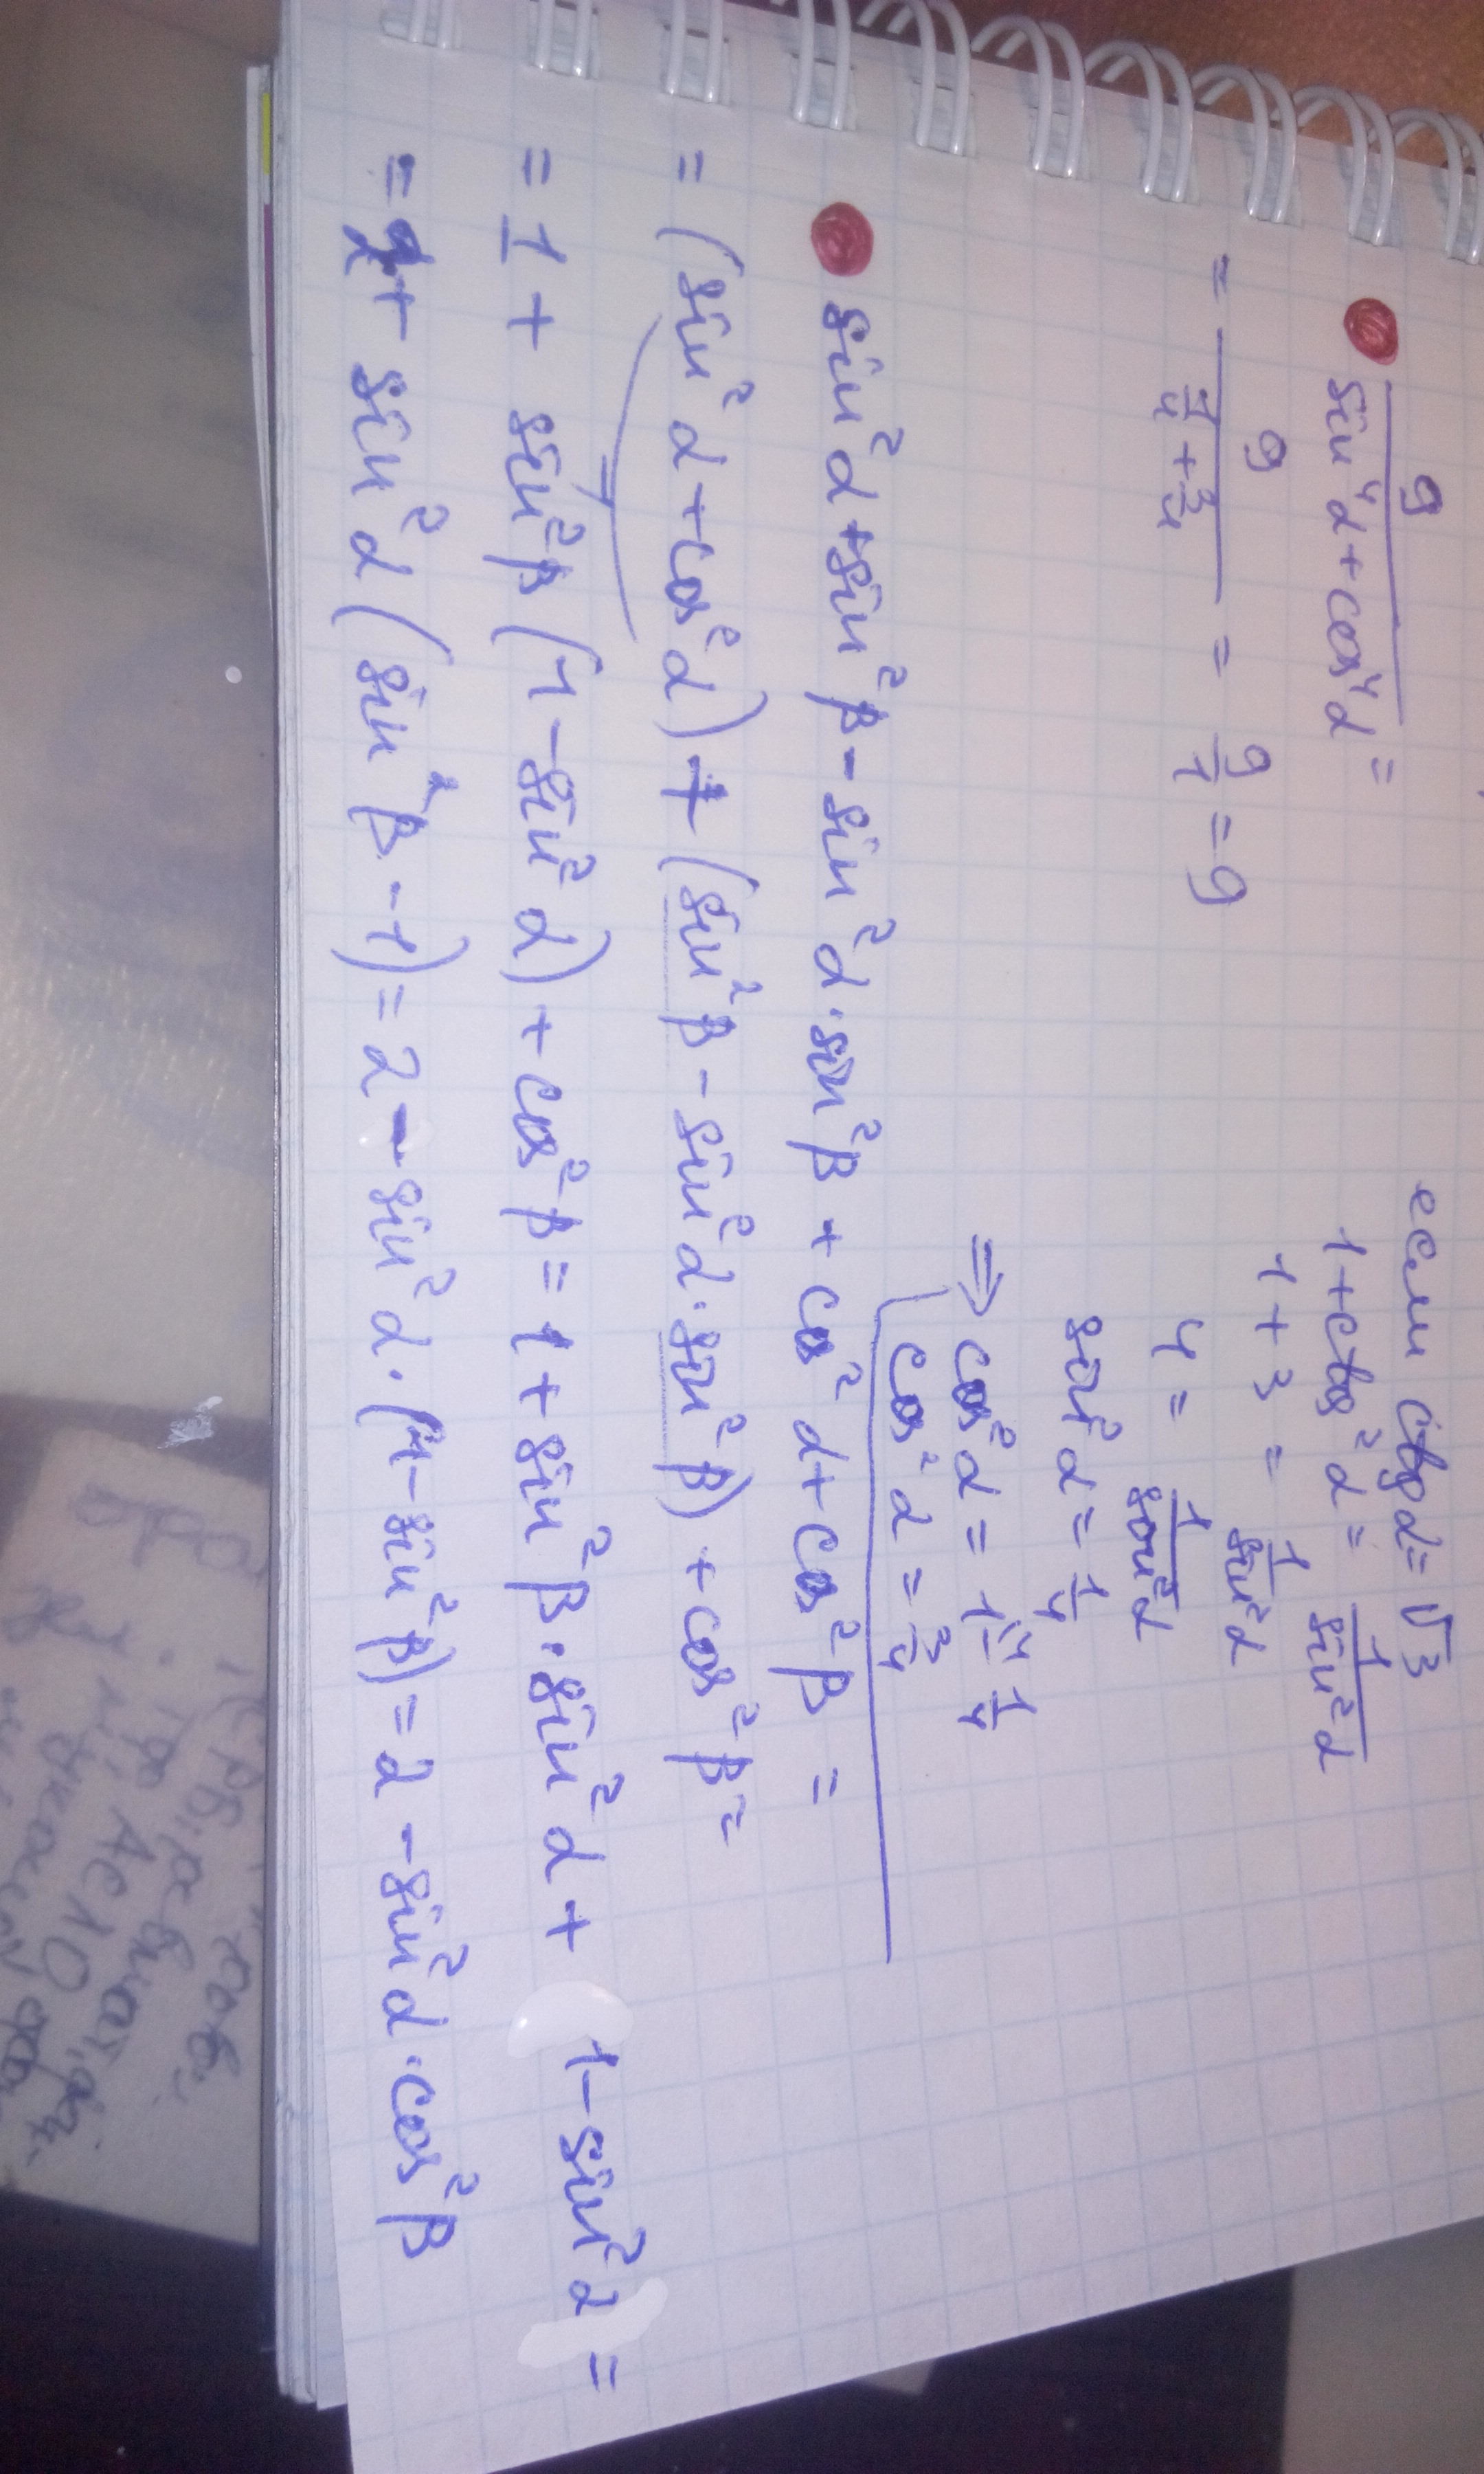 9
sin⁴α + cos⁴α =
= 9 / (1/4 + 3/4) = 9/1 = 9
если ctgα = √3
1 + ctg²α = 1/sin²α
1 + 3 = 1/sin²α
4 = 1/sin²α
sin²α = 1/4
⇒ cos²α = 1 - 1/4
cos²α = 3/4
sin²α + sin²β - sin²α · sin²β + cos²α + cos²β =
= (sin²α + cos²α) + (sin²β - sin²α · sin²β) + cos²β =
= 1 + sin²β (1 - sin²α) + cos²β = 1 + sin²β · sin²α + 1 - sin²α =
= 2 + sin²α (sin²β - 1) = 2 - sin²α · (1 - sin²β) = 2 - sin²α · cos²β